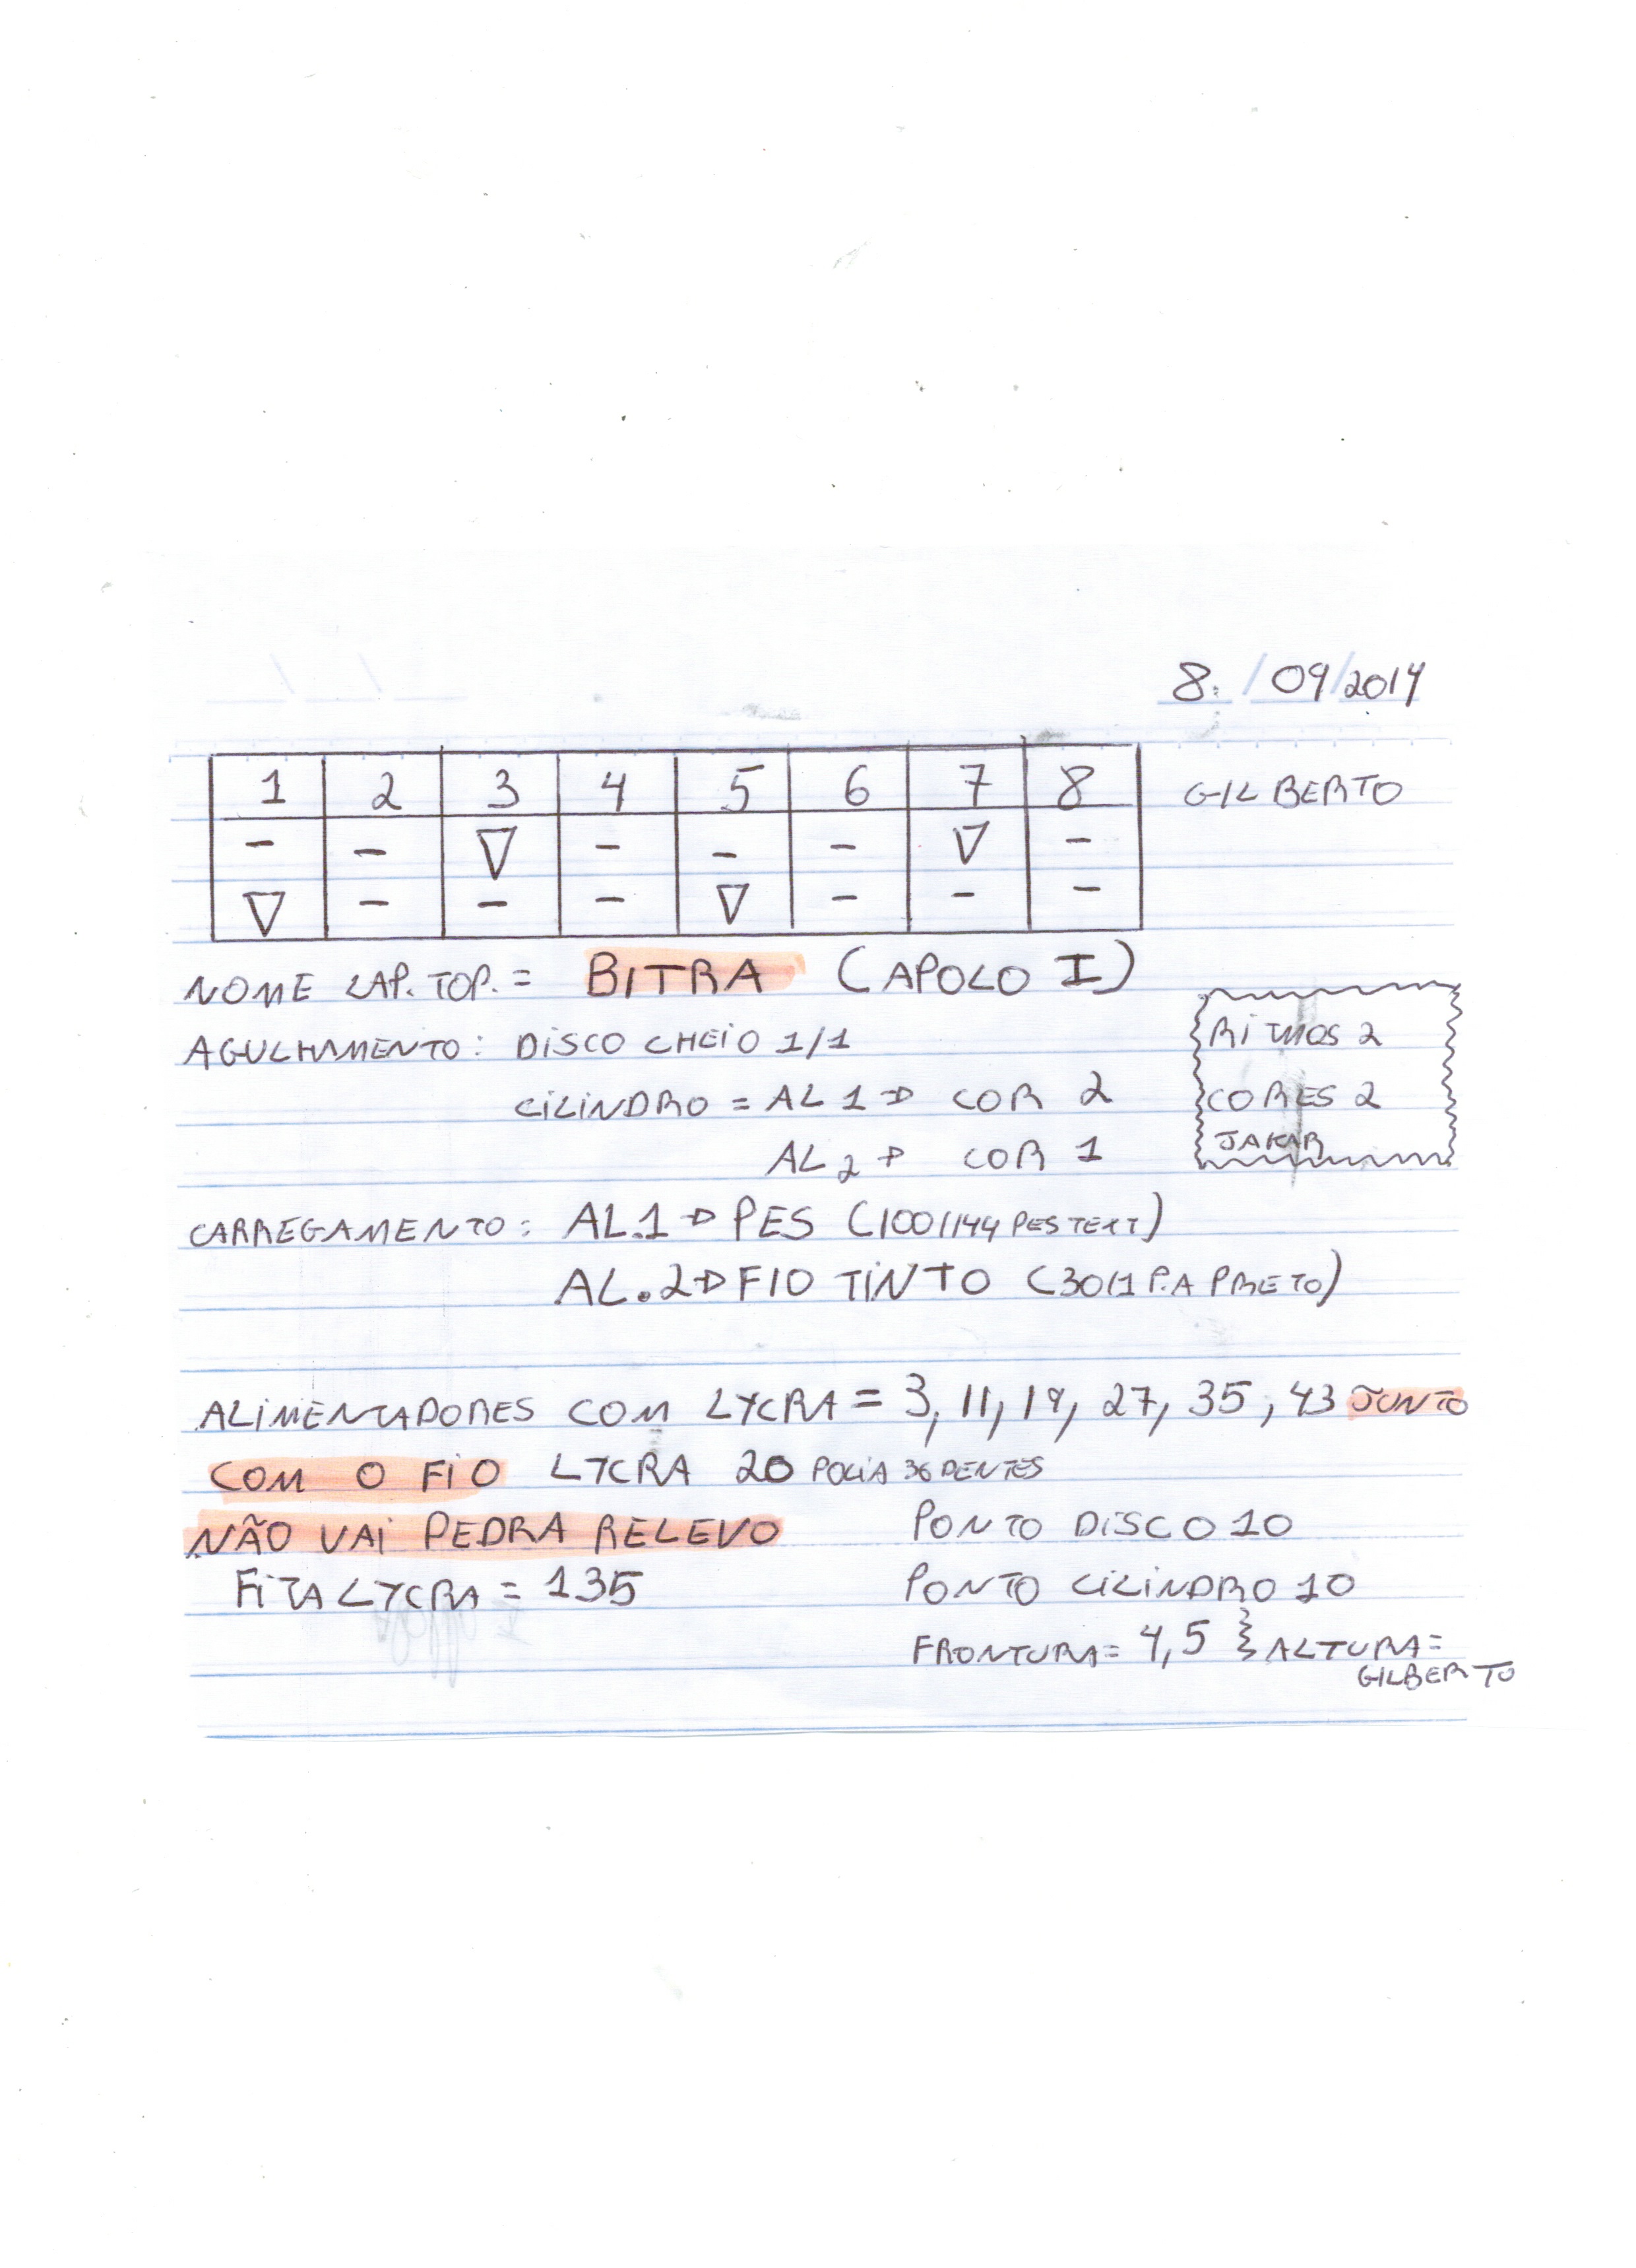 8. / 09 / 2014
1 2 3 4 5 6 7 8 GILBERTO
- - ▽ - - - ▽ -
▽ - - - ▽ - - -
NOME LAP.TOP. = BITRA (APOLO I)
RITMOS 2
AGULHAMENTO: DISCO CHEIO 1/1
CILINDRO = AL 1 → COR 2
CORES 2
JAKAR
AL 2 → COR 1
CARREGAMENTO: AL.1 → PES (100/144 PES TEXT)
AL.2 → FIO TINTO (30/1 P.A PRETO)
ALIMENTADORES COM LYCRA = 3, 11, 19, 27, 35, 43 JUNTO
COM O FIO LYCRA 20 POLIA 36 DENTES
NÃO VAI PEDRA RELEVO PONTO DISCO 10
FITA LYCRA = 135 PONTO CILINDRO 10
FRONTURA = 4,5 } ALTURA =
GILBERTO